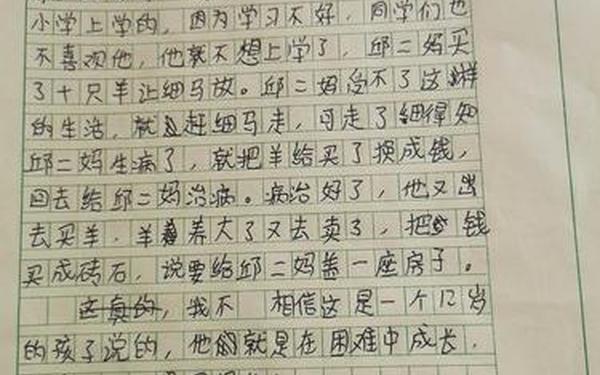 小学上学的，因为学习不好，同学们也
不喜欢他，他就不想上学了，邱二妈买
了十只羊让细马放。邱二妈受不了这样
的生活，就赶细马走，可走了细得知
邱二妈生病了，就把羊给买了换成钱，
回去给邱二妈治病。病治好了，他又出
去买羊，羊养大了又去卖了，把钱
买成砖石，说要给邱二妈盖一座房子。
这真的，我不 相信这是一个12岁
的孩子说的，他们就是在困难中成长．